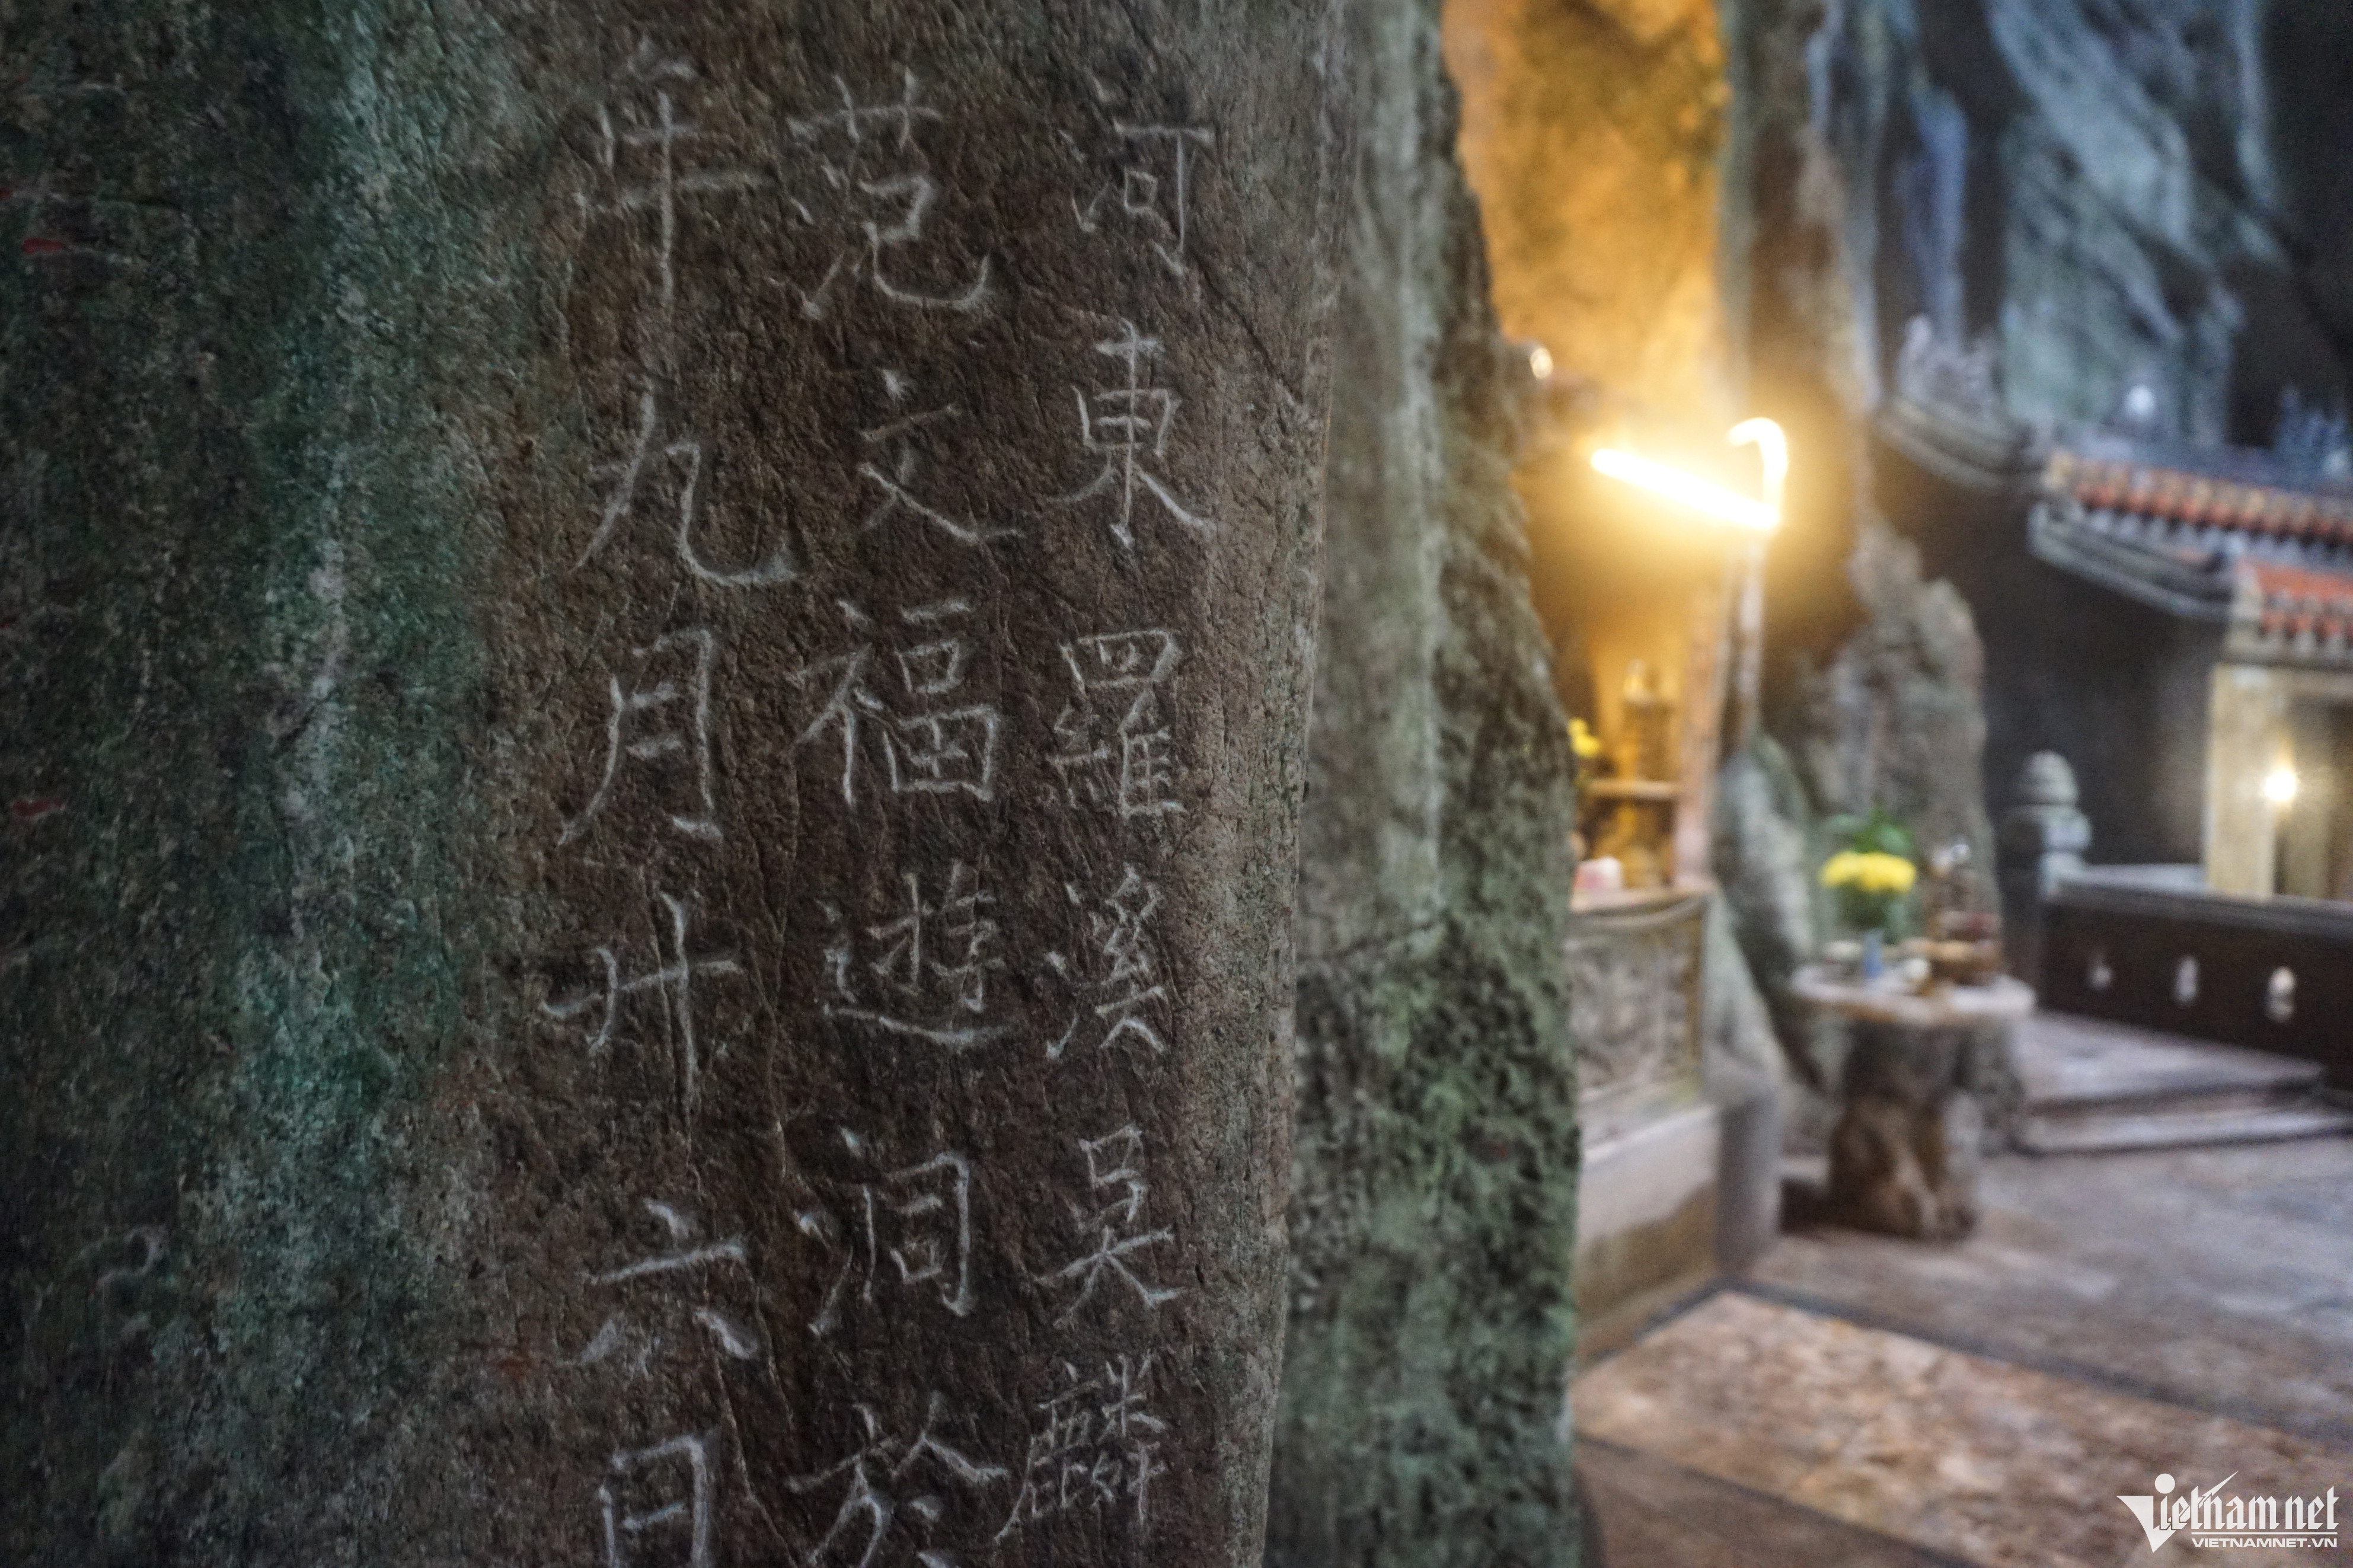 河東羅溪吳麟
范文福遊洞於
年九月廿六日
Vietnamnet
VIETNAMNET.VN